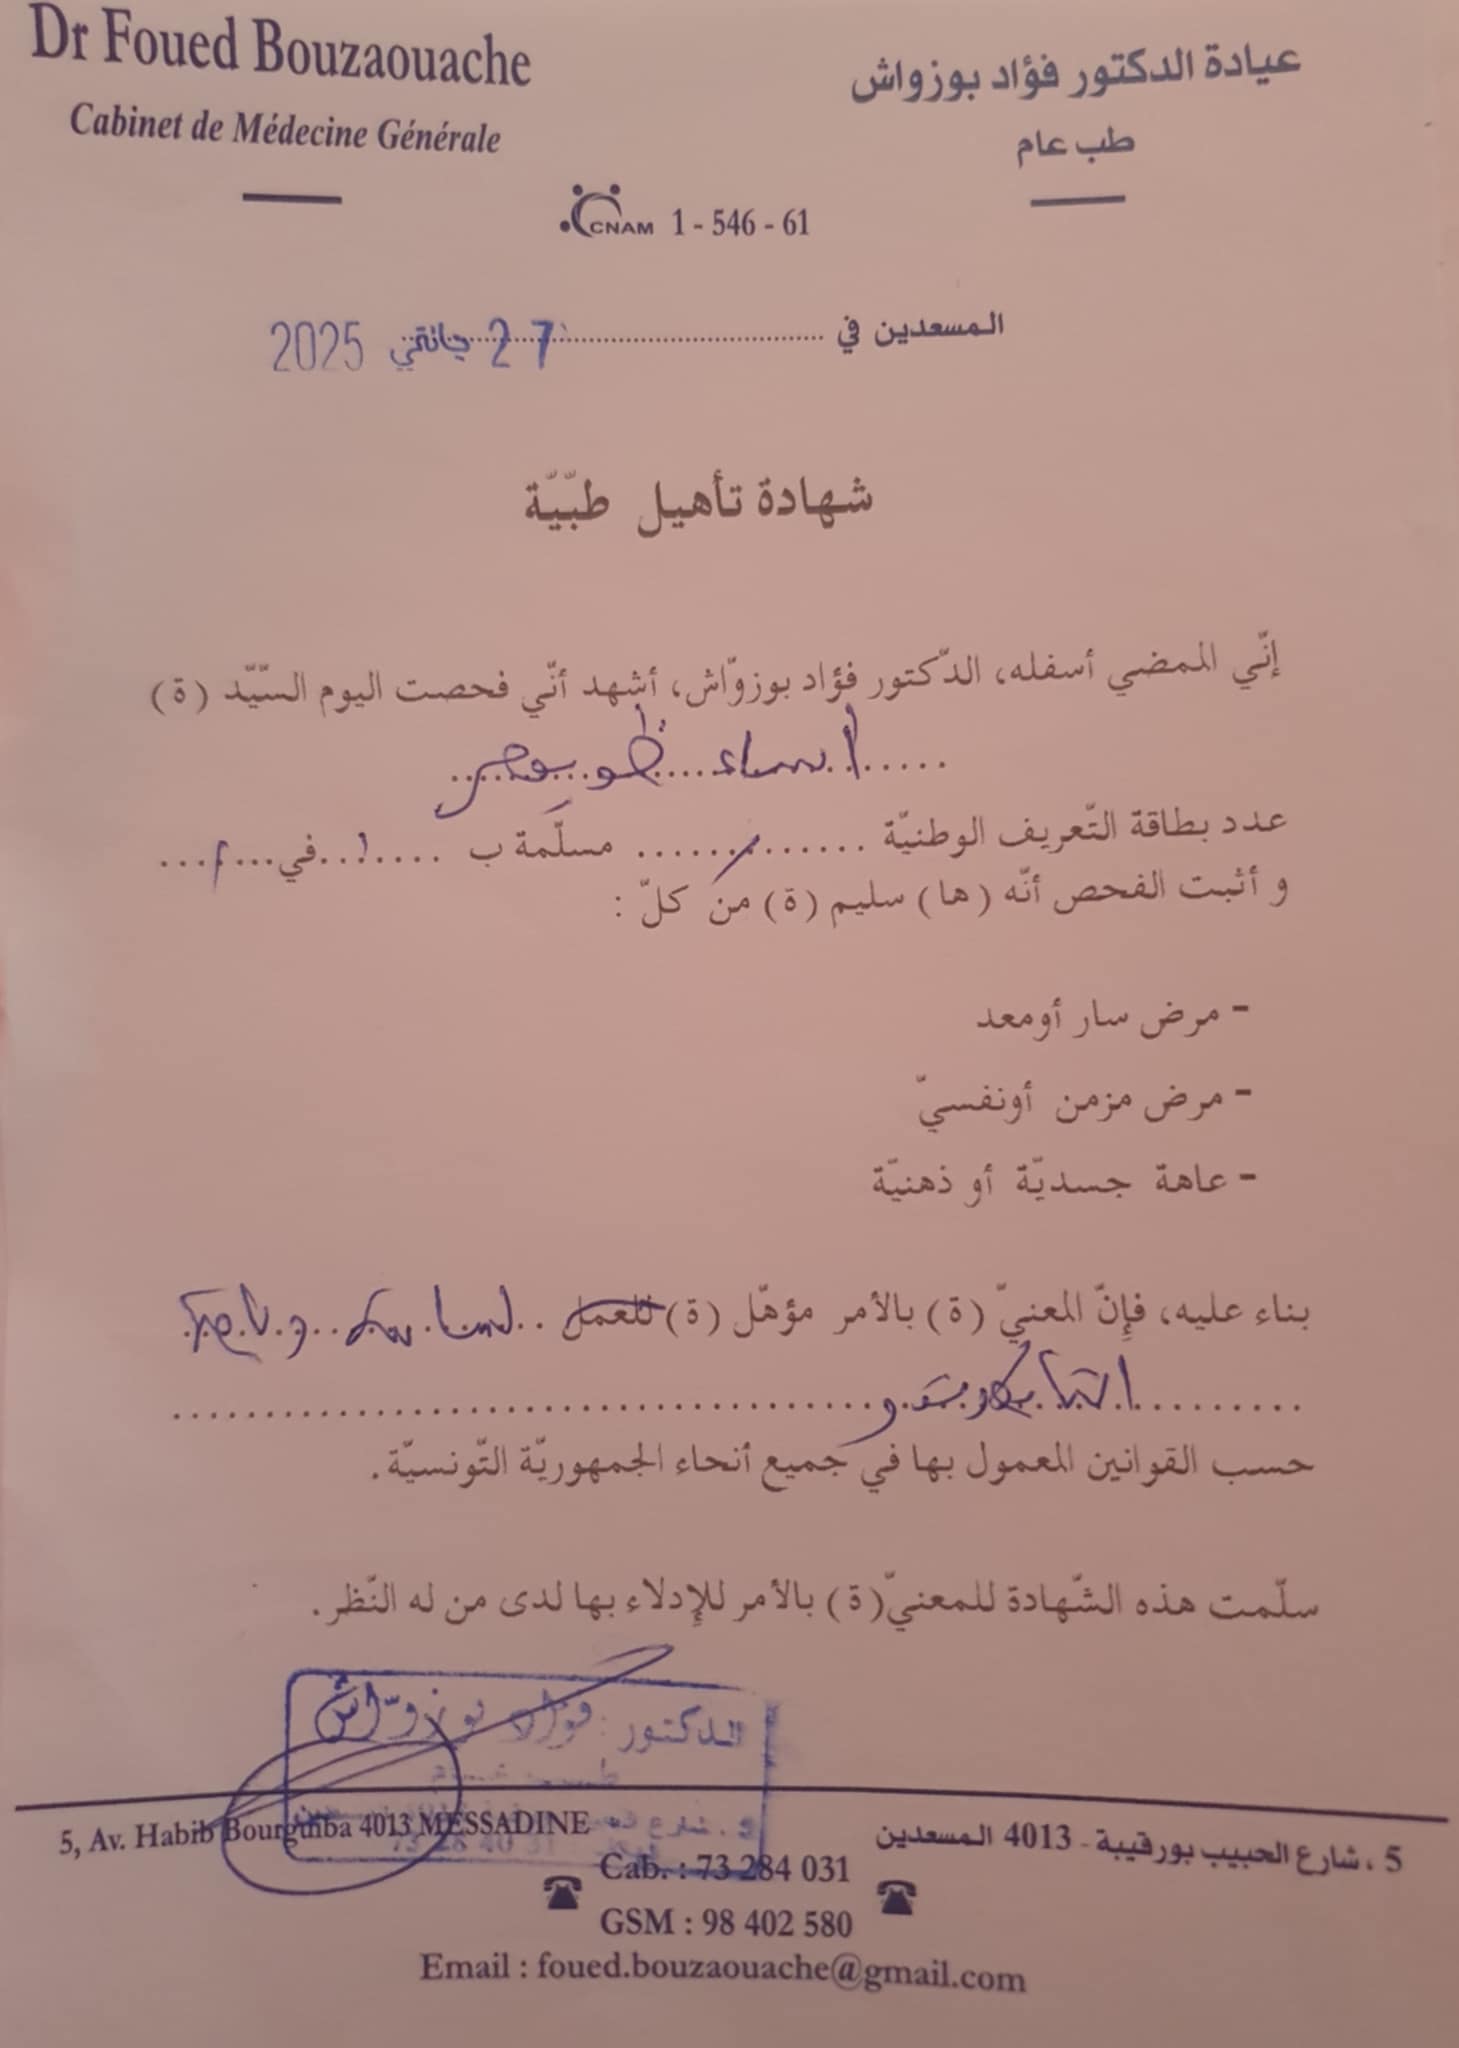 Dr Foued Bouzaouache
Cabinet de Médecine Générale
عيادة الدكتور فؤاد بوزواش
طب عام
CNAM 1 - 546 - 61
المسعدين في 27 جانفي 2025
شهادة تأهيل طبّيّة
إنّي الممضي أسفله، الدّكتور فؤاد بوزوّاش، أشهد أنّي فحصت اليوم السّيّد (ة)
اسماء
عدد بطاقة التّعريف الوطنيّة ............. مسلّمة ب ........في........
و أثبت الفحص أنّه (ها) سليم (ة) من كلّ :
- مرض سار أومعد
- مرض مزمن أونفسيّ
- عاهة جسديّة أو ذهنيّة
بناء عليه، فإنّ المعنيّ (ة) بالأمر مؤهّل (ة) للعمل
التايكوندو
حسب القوانين المعمول بها في جميع أنحاء الجمهوريّة التّونسيّة.
سلّمت هذه الشّهادة للمعنيّ(ة) بالأمر للإدلاء بها لدى من له النّظر.
الدكتور : فؤاد بوزوّاش
5, Av. Habib Bourguiba 4013 MESSADINE
5 ، شارع الحبيب بورقيبة - 4013 المسعدين
Cab. : 73 284 031
GSM : 98 402 580
Email : foued.bouzaouache@gmail.com